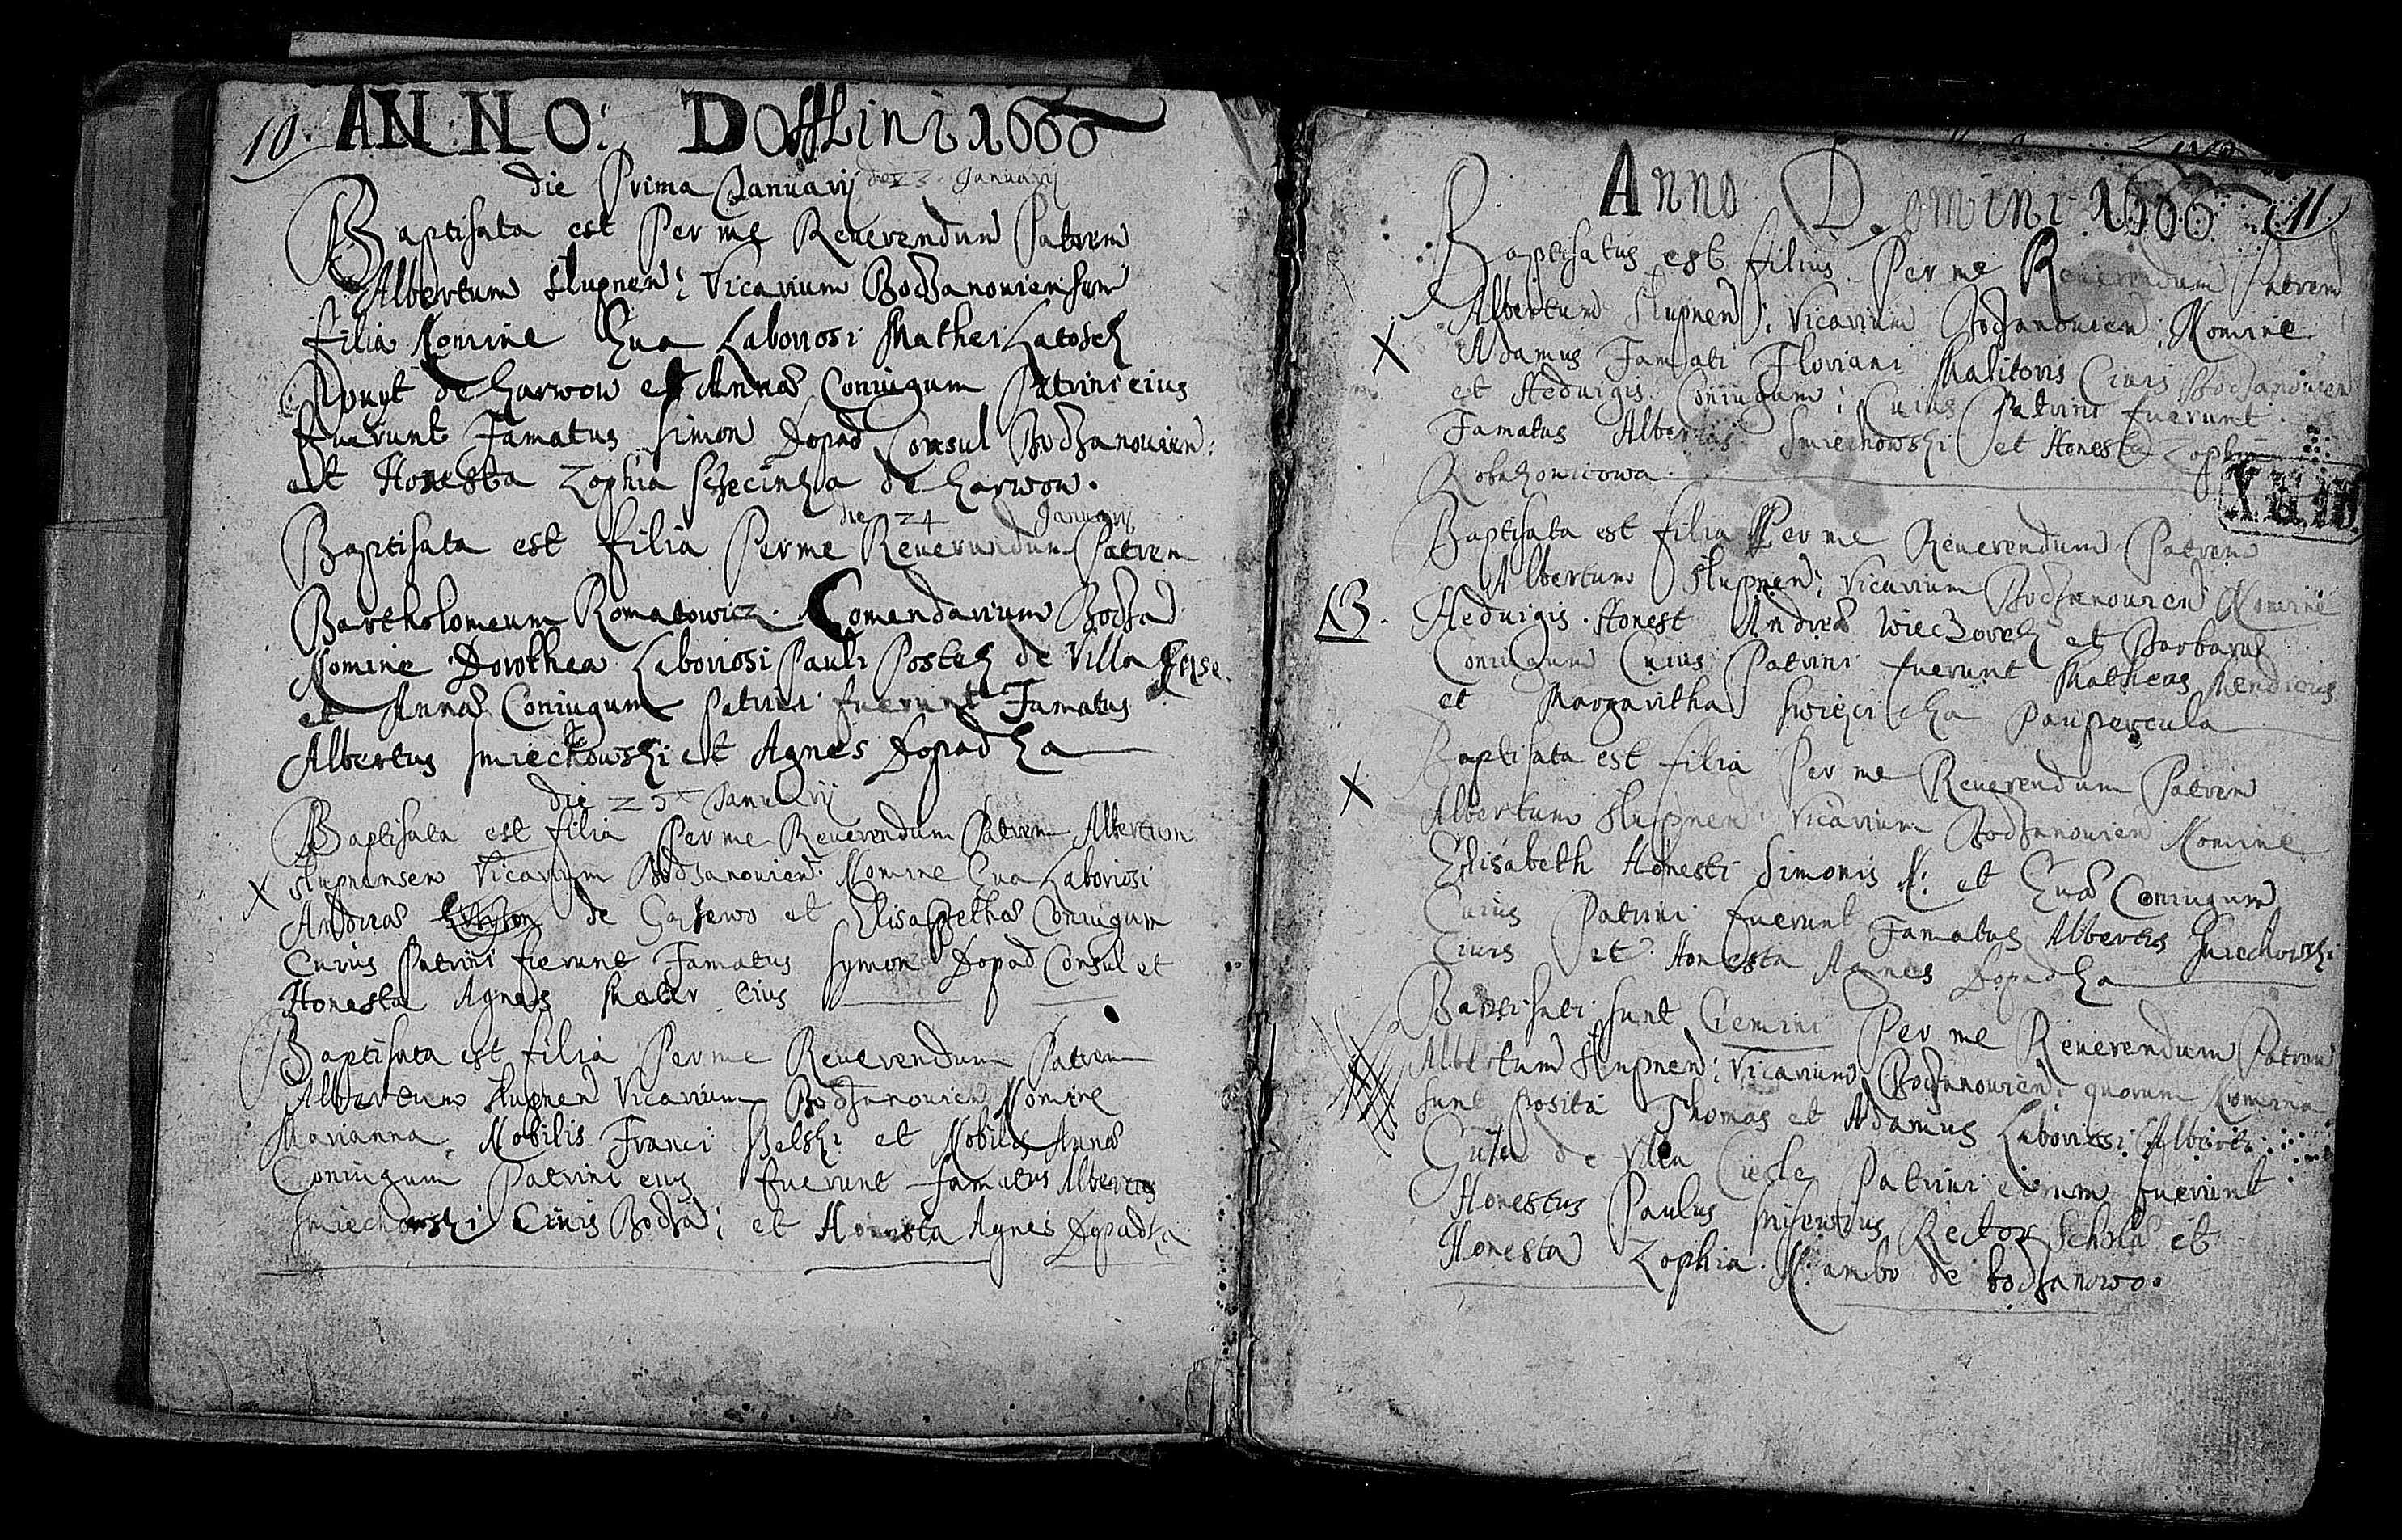 10. ANNO: DOMini 1666
die Prima Januarij die 23 Januarij
Baptisata est Per me Reuerendum Patrem
Albertum Slupnen: Vicarium Bodzanouiensem
filia Nomine Eua Laboriosi Mathei Latosek
de Garwow et Annae Coniugum Patrini eius
fuerunt Famatus Simon Dopad Consul Bodzanouien:
et Honesta Zophia de Garwow.
die 24 Januarij
Baptisata est filia Per me Reuerendum Patrem
Bartholomeum Romatowicz. Comendarium Bodza
Nomine Dorothea Laboriosi Pauli Postek de Villa
et Annae Coniugum Patrini fuerunt Famatus
Albertus Smiechowski et Agnes Dopadka
die 25 Januarij
Baptisata est filia Per me Reuerendum Patrem Albertum
X Slupnensem Vicarium Bodzanouien: Nomine Eua Laboriosi
Andreae de et Elisabethae Coniugum
Cuius Patrini fuerunt Famatus Symon Dopad Consul et
Honesta Agnes Mater eius
Baptisata est filia Per me Reuerendum Patrem
Albertum Slupnen Vicarium Bodzanouien Nomine
Marianna Nobilis Franci Belski et Nobilis Annae
Coniugum Patrini eius fuerunt famatus Albertus
Smiechowski Ciuis Bodza: et Honesta Agnes Dopadka
Anno Domini 1666 11
Baptisatus est filius Per me Reuerendum Patrem
Albertum Slupnen: Vicarium Bodzanouien: Nomine
X Adamus Famati Floriani Malitoris Ciuis Bodzanouien
et Heduigis Coniugum: Cuius Patrini fuerunt
Famatus Albertus Smiechowski et Honesta Zophia
Baptisata est filia Per me Reuerendum Patrem
Albertum Slupnen: Vicarium Bodzanouien Nomine
13. Heduigis. Honest Andreae Wieczorek et Barbarae
Coniugum Cuius Patrini fuerunt Matheas Mendicus
et Margaritha Paupercula
Baptisata est filia Per me Reuerendum Patrem
X Albertum Slupnen: Vicarium Bodzanouien Nomine
Elisabeth Honesti Simonis N: et Euae Coniugum
Cuius Patrini fuerunt Famatus Albertus Smiechowski
Ciuis et Honesta Agnes Dopadka
Baptisati sunt Gemini Per me Reuerendum Patrem
Albertum Slupnen: Vicarium Bodzanouien: quorum Nomina
sunt posita Thomas et Adamus Laboriosi
de Villa Patrini eorum fuerunt
Honestus Paulus Rector Scholae et
Honesta Zophia N: ambo de Bodzanowo.